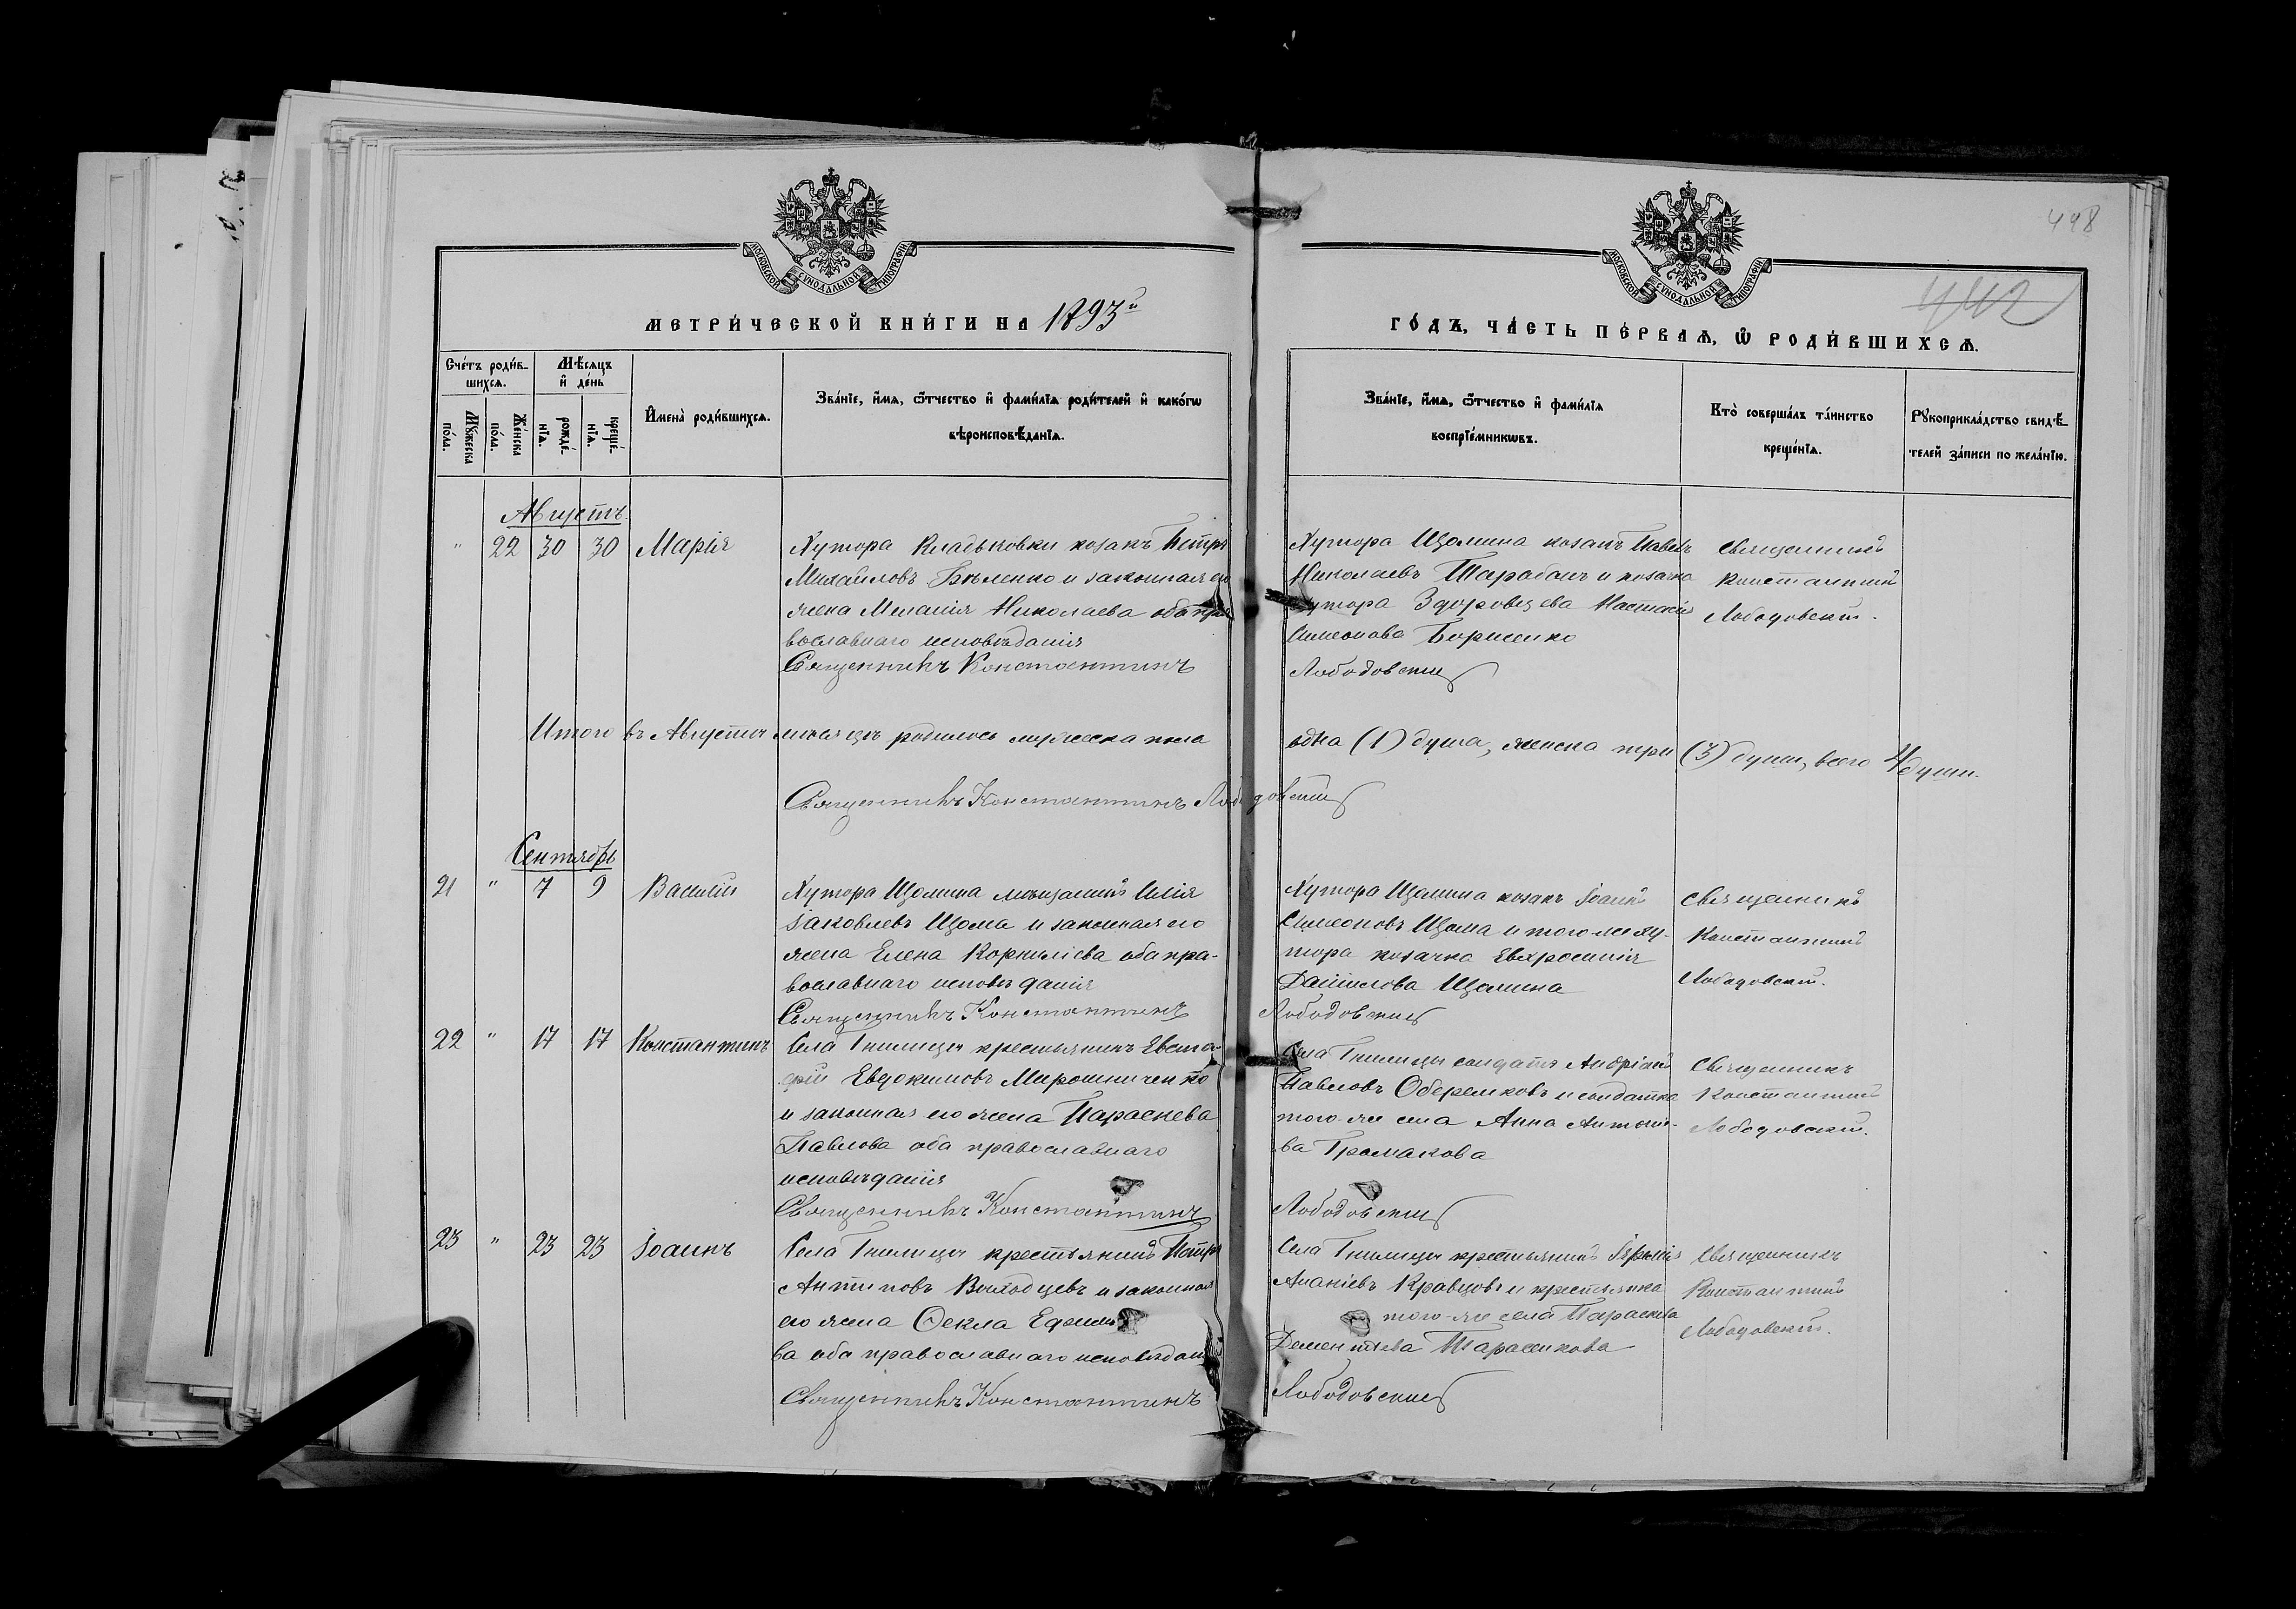 498
442
МОСКОВСКОЙ СѴНОДАЛЬНОЙ ТИПОГРАФІИ
МОСКОВСКОЙ СѴНОДАЛЬНОЙ ТИПОГРАФІИ
МЕТРИ́ЧЕСКОЙ КНИ́ГИ НА 1893й
ГО́ДЪ, ЧА́СТЬ ПЕ́РВАѦ, Ѡ҆ РОДИ́ВШИХСѦ.
Сче́тъ роди́вшихсѧ.
Мꙋ́жеска по́ла.
Же́нска по́ла.
Мѣ́сѧцъ и҆ де́нь
рожде́нїѧ.
креще́нїѧ.
И҆мена̀ роди́вшихсѧ.
Зва́нїе, и҆́мѧ, ѻ҆́тчество и҆ фами́лїѧ роди́телей и҆ како́гѡ
вѣроисповѣ́данїѧ.
Зва́нїе, и҆́мѧ, ѻ҆́тчество и҆ фами́лїѧ
воспрїе́мникѡвъ.
Кто̀ соверша́лъ та́инство
креще́нїѧ.
Рꙋкоприкла́дство свидѣ́-
телей за́писи по жела́нїю.
Августъ
" 22 30 30 Марія
Хутора Кладьковки козакъ Петръ
Михайловъ Бѣленко и законная его
жена Меланія Николаева оба пра
вославнаго исповѣданія
Священникъ Константинъ
Хутора Щомина козакъ Павелъ
Николаевъ Шарабанъ и козачка
хутора Здоровцева Настасія
Симеонова Борисенко
Лободовскій
Священникъ
Константинъ
Лободовскій.
Итого въ Августѣ мѣсяцѣ родилось мужеска пола
одна (1) душа, женска три (3) души, всего 4 души.
Священникъ Константинъ Лободовскій
Сентябрь
21 " 7 9 Василій
Хутора Щомина мѣщанинъ Илія
Іаковлевъ Щома и законная его
жена Елена Корниліева оба пра-
вославнаго исповѣданія
Священникъ Константинъ
Хутора Щомина козакъ Іоаннъ
Симеоновъ Щома и того же ху-
тора козачка Евфросинія
Даніилова Щомина
Лободовскій
Священникъ
Константинъ
Лободовскій.
22 " 17 17 Константинъ
Села Гнилицы крестьянинъ Евста-
фій Евдокимовъ Мирошниченко
и законная его жена Параскева
Павлова оба православнаго
исповѣданія
Священникъ Константинъ
Села Гнилицы солдатъ Андріанъ
Павловъ Оберемковъ и солдатка
того-же села Анна Антоніе-
ва Громакова
Лободовскій
Священникъ
Константинъ
Лободовскій.
23 " 23 23 Іоаннъ
Села Гнилицы крестьянинъ Петръ
Антиповъ Выходцевъ и законная
его жена Ѳекла Ефимо
ва оба православнаго исповѣданія
Священникъ Константинъ
Села Гнилицы крестьянинъ
Ананіевъ Кравцовъ и крестьянка
того-же села Параскева
Дементіева Тарасенкова
Лободовскій
Священникъ
Константинъ
Лободовскій.